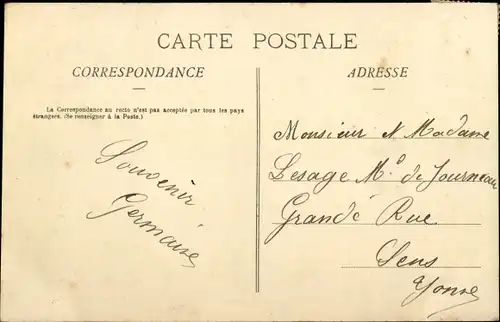 CARTE POSTALE
CORRESPONDANCE
La Correspondance au recto n'est pas acceptée par tous les pays
étrangers. (Se renseigner à la Poste.)
Souvenir
Germaine
ADRESSE
Monsieur & Madame
Lesage Md de Journeaux
Grande Rue
Sens
Yonne